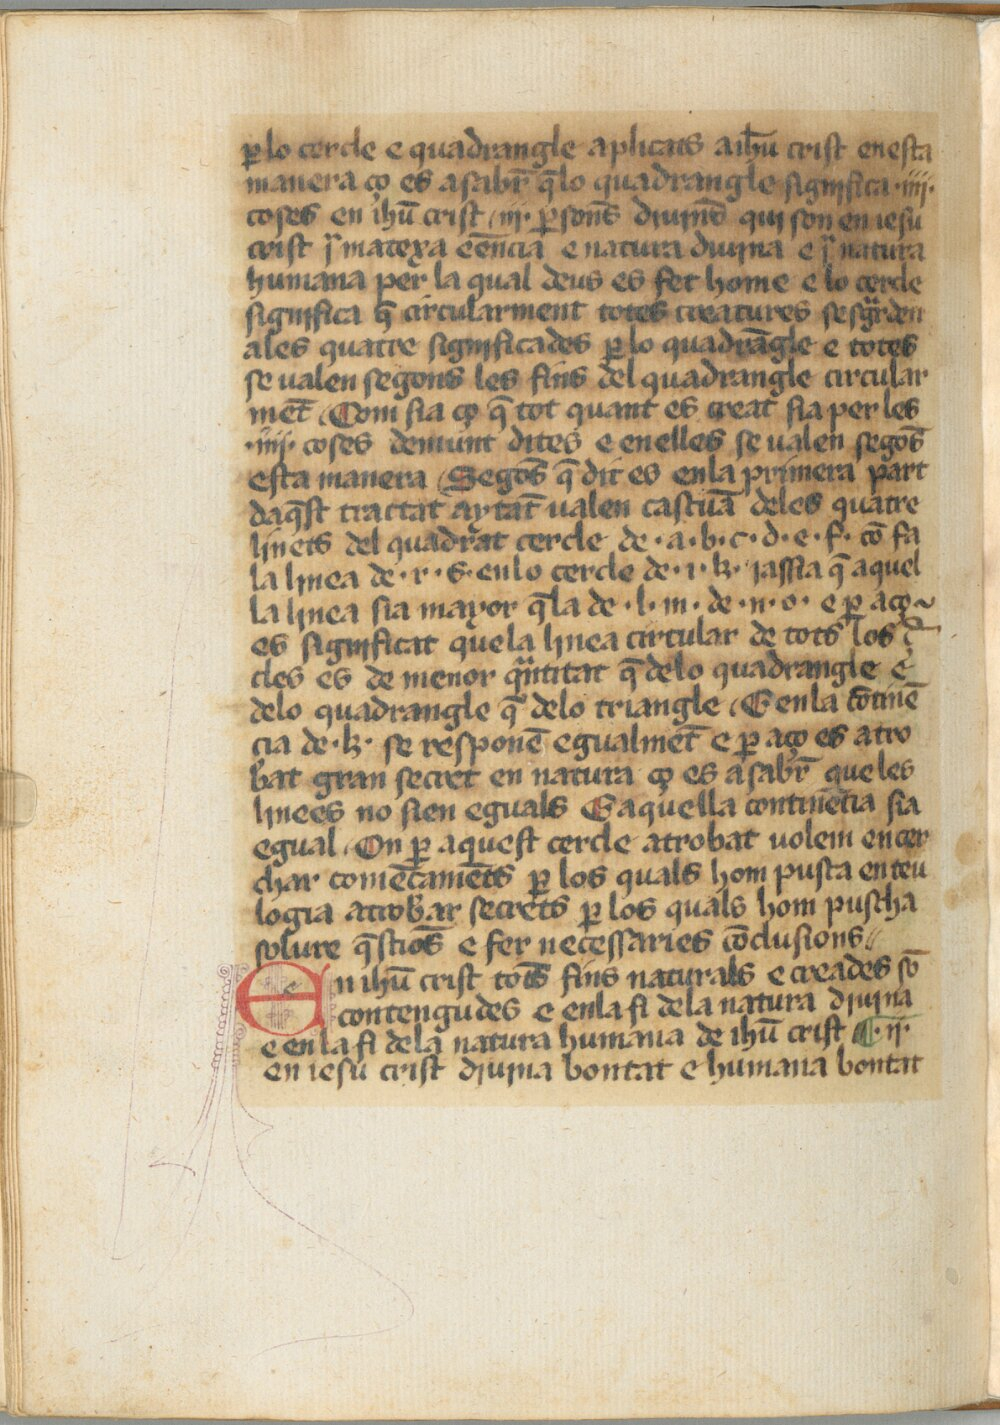 ꝑ lo cercle e quadrangle aplicats a ihū crist en esta
manera ço es a sabr̄ q̄ lo quadrangle significa ·iiij·
coses en ihū crist iij· ꝑsonēs diuinēs qui son en iesu
crist ·i· matexa eēncia e natura diuina e ·i· natura
humana per la qual deus es fet home e lo cercle
significa q̄ circularment totes creatures se sgarden
a les quatre significades ꝑ lo quadrāgle e totes
se ualen segons les fins del quadrangle circular
mēt Com sia ço q̄ tot quant es creat sia per les
·iiij· coses demunt dites e en elles se ualen segōs
esta manera Segōs q̄ dit es en la primera part
daq̄st tractat aytāt ualen cascuā de les quatre
linees del quadrat cercle de ·a·b·c·d·e·f· cō fa
la linea de ·r·s· en lo cercle de ·i·k· iassia q̄ aquel
la linea sia mayor q̄ la de ·l·m· de ·n·o· e ꝑ aço
es significat que la linea circular de tots los c̄
cles es de menor q̄ntitat q̄ de lo quadrangle e
de lo quadrangle q̄ de lo triangle E en la cōtinē
cia de ·k· se responē egualmēt e ꝑ aço es atro
bat gran secret en natura ço es a sabr̄ que les
linees no sien eguals E aquella continēcia sia
egual On ꝑ aquest cercle atrobat uolem encer
char comēcamēts ꝑ los quals hom pusca en teu
logia atrobar secrets ꝑ los quals hom puscha
solure q̄stiōs e fer necessaries cōclusions
En ihū crist totēs fins naturals e creades sō
contengudes e en la fi de la natura diuina
e en la fi de la natura humana de ihū crist ¶ ·ij·
en iesu crist diuina bontat e humana bontat